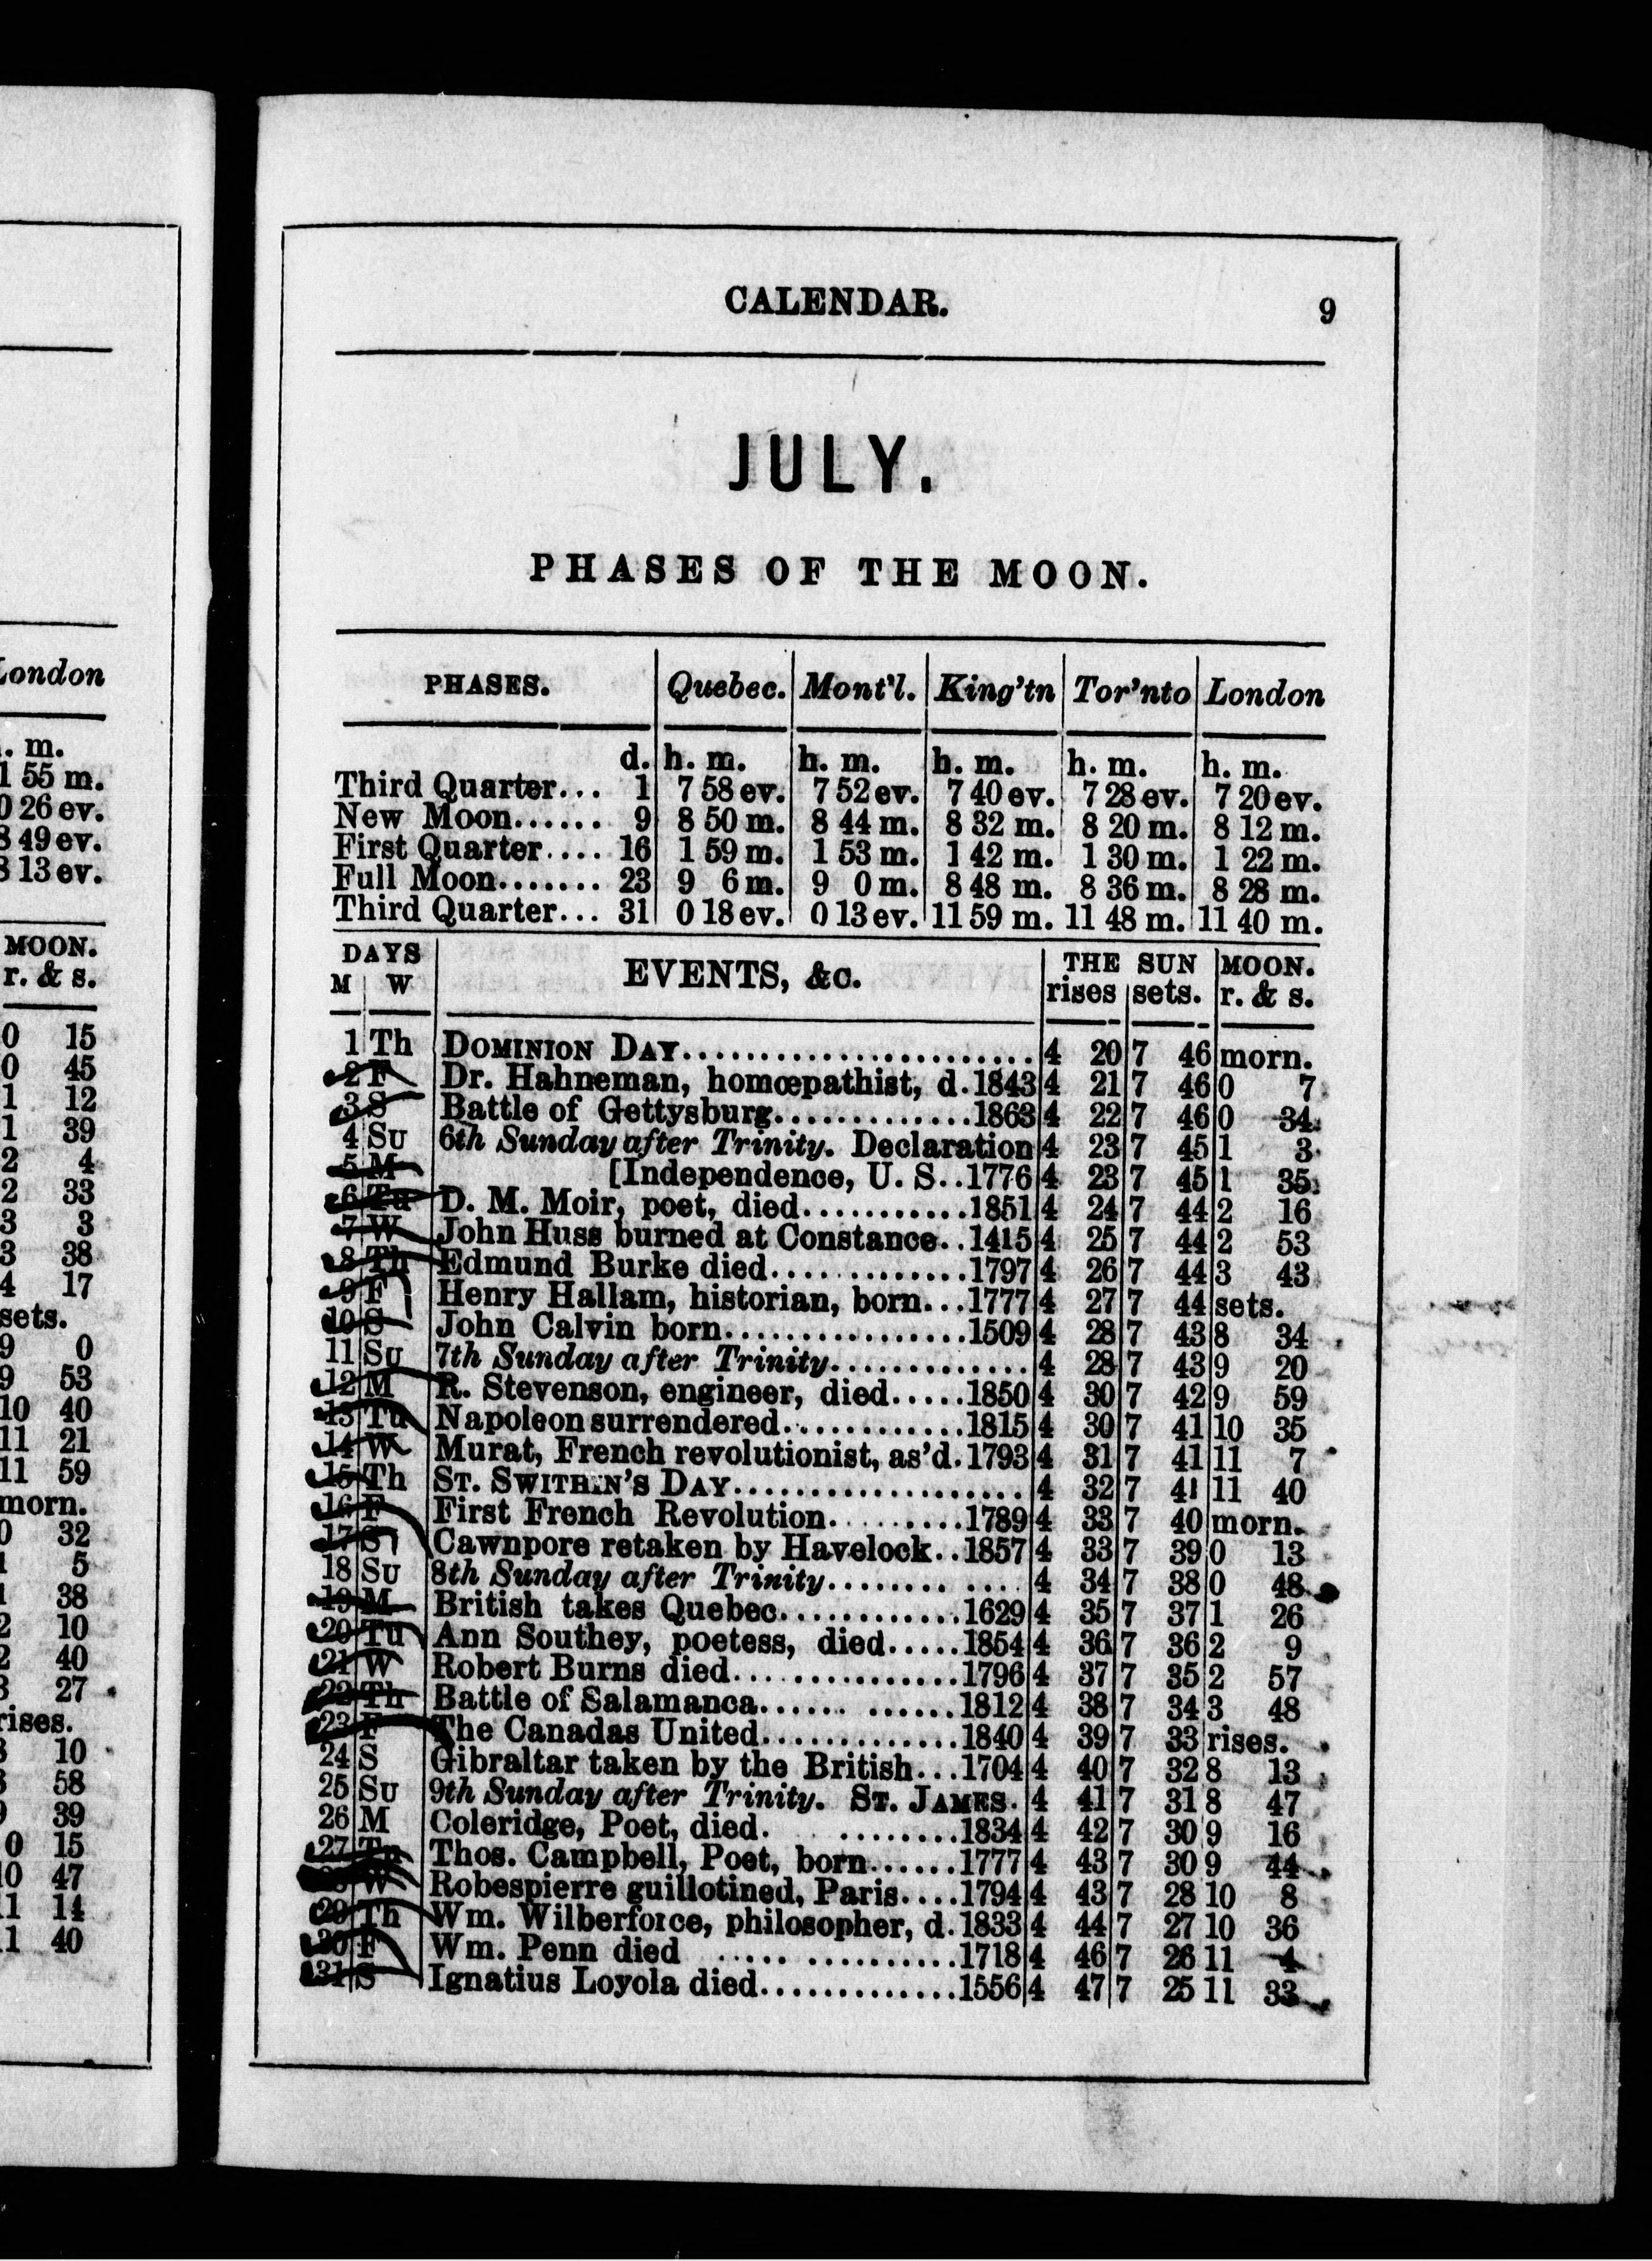 London
. m.
1 55 m.
0 26 ev.
8 49 ev.
8 13 ev.
MOON.
r. & s.
0 15
0 45
1 12
1 39
2 4
2 33
3 3
3 38
4 17
sets.
9 0
9 53
10 40
11 21
11 59
morn.
0 32
1 5
1 38
2 10
2 40
3 27
rises.
8 10
8 58
9 39
0 15
10 47
11 14
11 40
CALENDAR. 9
JULY.
PHASES OF THE MOON.
PHASES. Quebec. Mont'l. King'tn Tor'nto London
d. h. m. h. m. h. m. h. m. h. m.
Third Quarter... 1 7 58 ev. 7 52 ev. 7 40 ev. 7 28 ev. 7 20 ev.
New Moon...... 9 8 50 m. 8 44 m. 8 32 m. 8 20 m. 8 12 m.
First Quarter.... 16 1 59 m. 1 53 m. 1 42 m. 1 30 m. 1 22 m.
Full Moon....... 23 9 6 m. 9 0 m. 8 48 m. 8 36 m. 8 28 m.
Third Quarter... 31 0 18 ev. 0 13 ev. 11 59 m. 11 48 m. 11 40 m.
DAYS EVENTS, &c. THE SUN MOON.
M W rises sets. r. & s.
1 Th DOMINION DAY........................ 4 20 7 46 morn.
2 F Dr. Hahneman, homœpathist, d. 1843 4 21 7 46 0 7
3 S Battle of Gettysburg..............1863 4 22 7 46 0 34
4 Su 6th Sunday after Trinity. Declaration 4 23 7 45 1 3
5 M [Independence, U. S..1776 4 23 7 45 1 35
6 Tu D. M. Moir, poet, died...........1851 4 24 7 44 2 16
7 W John Huss burned at Constance..1415 4 25 7 44 2 53
8 Th Edmund Burke died.............1797 4 26 7 44 3 43
9 F Henry Hallam, historian, born...1777 4 27 7 44 sets.
10 S John Calvin born.................1509 4 28 7 43 8 34
11 Su 7th Sunday after Trinity.............. 4 28 7 43 9 20
12 M R. Stevenson, engineer, died.....1850 4 30 7 42 9 59
13 Tu Napoleon surrendered............1815 4 30 7 41 10 35
14 W Murat, French revolutionist, as'd.1793 4 31 7 41 11 7
15 Th ST. SWITHIN'S DAY.................... 4 32 7 41 11 40
16 F First French Revolution.........1789 4 33 7 40 morn.
17 S Cawnpore retaken by Havelock..1857 4 33 7 39 0 13
18 Su 8th Sunday after Trinity........ .... 4 34 7 38 0 48
19 M British takes Quebec............1629 4 35 7 37 1 26
20 Tu Ann Southey, poetess, died.....1854 4 36 7 36 2 9
21 W Robert Burns died...............1796 4 37 7 35 2 57
22 Th Battle of Salamanca...... ......1812 4 38 7 34 3 48
23 F The Canadas United.............1840 4 39 7 33 rises.
24 S Gibraltar taken by the British...1704 4 40 7 32 8 13
25 Su 9th Sunday after Trinity. ST. JAMES. 4 41 7 31 8 47
26 M Coleridge, Poet, died. ........1834 4 42 7 30 9 16
27 Tu Thos. Campbell, Poet, born......1777 4 43 7 30 9 44
W Robespierre guillotined, Paris....1794 4 43 7 28 10 8
29 Th Wm. Wilberforce, philosopher, d. 1833 4 44 7 27 10 36
30 F Wm. Penn died ..... ..........1718 4 46 7 26 11 4
31 S Ignatius Loyola died.............1556 4 47 7 25 11 33